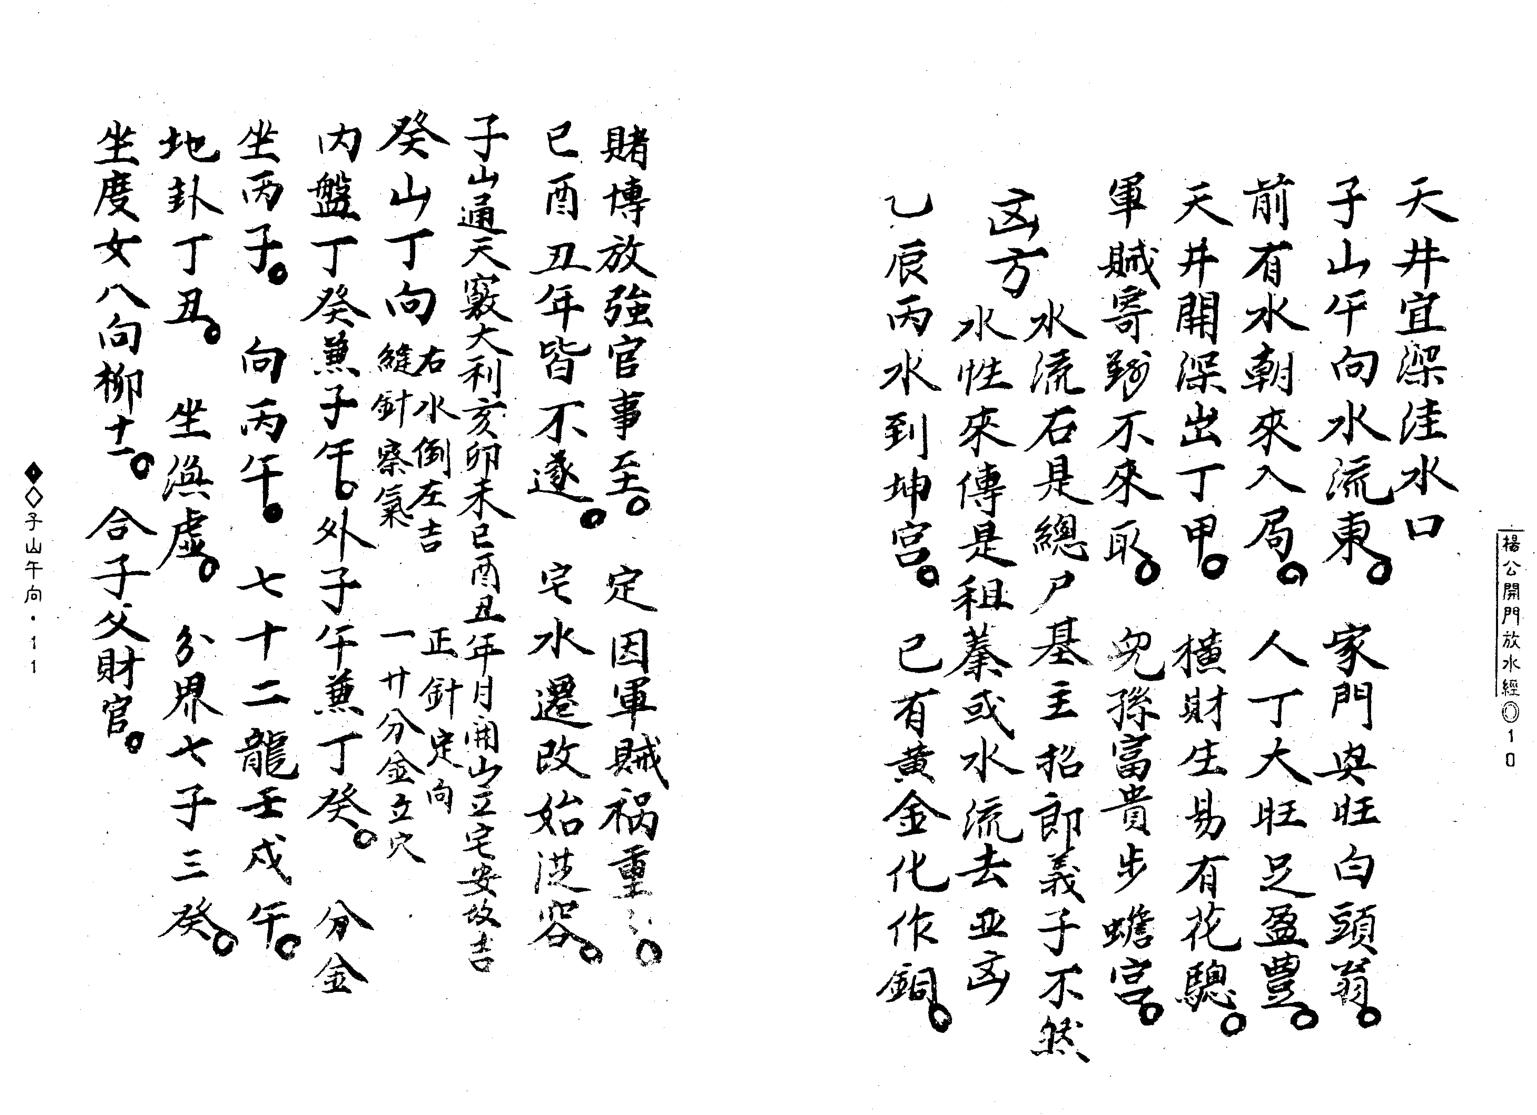 楊公開門放水經◎10
天井宜深洼水口
子山午向水流東。家門興旺白頭翁。
前有水朝來入局。人丁大旺足盈豐。
天井開深出丁甲。橫財生易有花驄。
軍賊寄對不來取。兒孫富貴步蟾宮。
凶方
水流右是總尸基主招郎義子不然
水性來傳是租蓁或水流去並凶
乙辰丙水到坤宮。已有黃金化作銅。
賭博放強官事至。定因軍賊禍重
已酉丑年皆不遂。宅水遷改始從容。
子山通天竅大利亥卯未已酉丑年月開山立宅安坟吉
癸山丁向
右水倒左吉 正針定向
縫針察氣 一廿分金立穴
內盤丁癸兼子午。外子午兼丁癸。分金
坐丙子。向丙午。七十二龍壬戍午。
地卦丁丑。坐渙虛。分界七子三癸。
坐度女八向柳十一。合子父財官。
子山午向·11